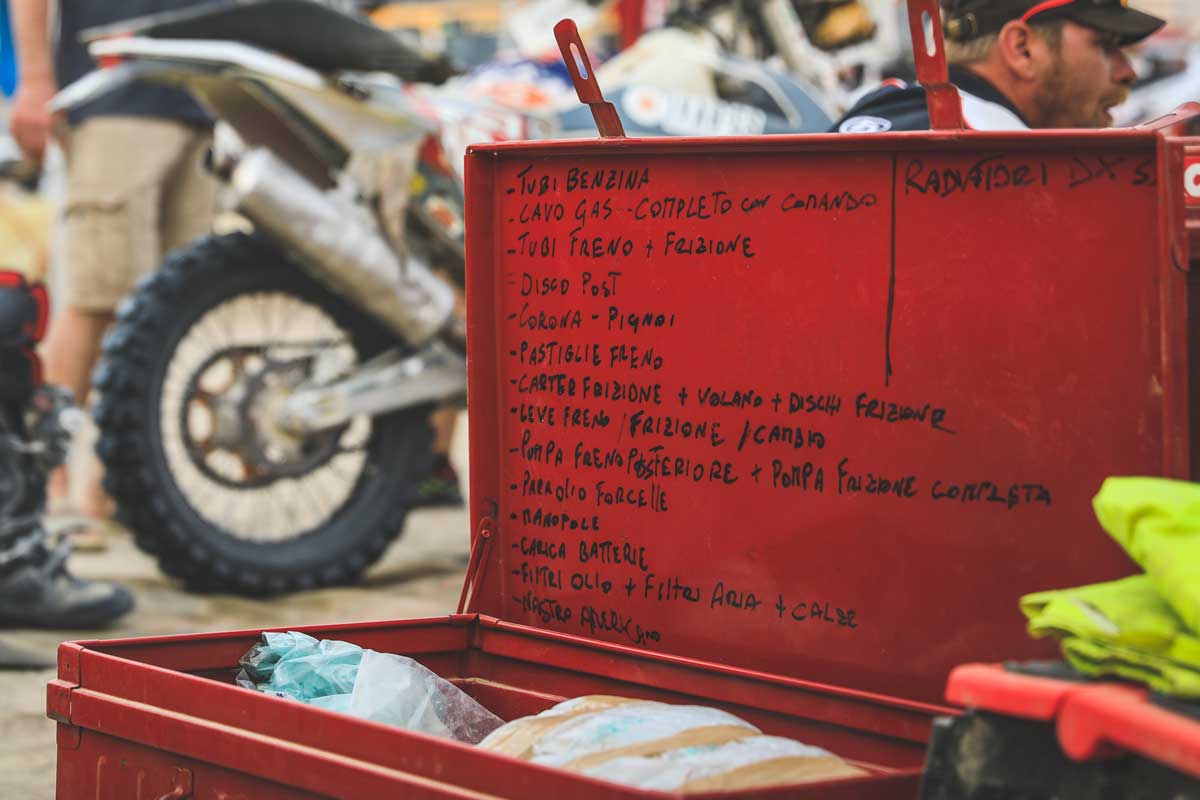 -TUBI BENZINA
-CAVO GAS -COMPLETO con COMANDO
-TUBI FRENO + FRIZIONE
-DISCO POST
-CORONA - PIGNOI
-PASTIGLIE FRENO
-CARTER FRIZIONE + VOLANO + DISCHI FRIZIONE
-LEVE FRENO /FRIZIONE /CAMBIO
-POMPA FRENO POSTERIORE + POMPA FRIZIONE COMPLETA
-PARAOLIO FORCELLE
-MANOPOLE
-CARICA BATTERIE
-FILTRI OLIO + FILTRI ARIA + CALZE
-NASTRO AMERICANO
RADIATORI DX S